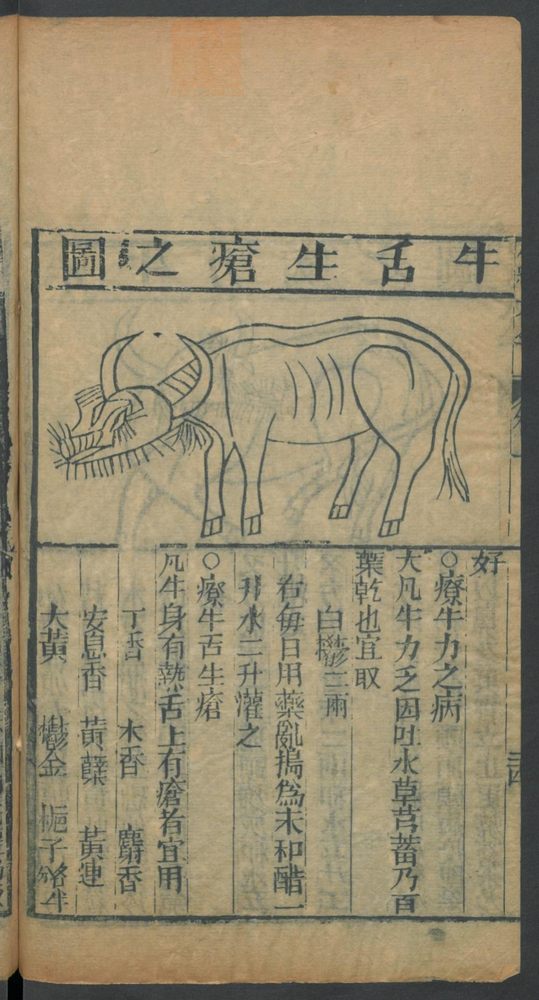 牛舌生瘡之圖
好
○療牛力之病
大凡牛力乏因吐水草芎蓄乃百
葉乾也宜取
白鬱二兩
右每日用藥亂搗為末和醋一
升水二升灌之
○療牛舌生瘡
凡牛身有熱舌上有瘡者宜用
丁香 木香 麝香
安息香 黃蘗 黃連
大黃 鬱金 梔子